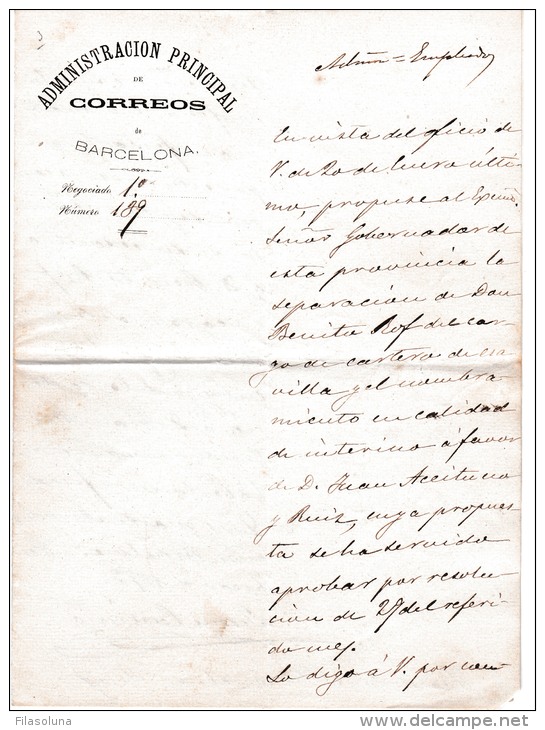 ADMINISTRACION PRINCIPAL
DE
CORREOS
de
BARCELONA.
Negociado 1.º
Número 189
Admon = Empleados
En vista del oficio de
V. de 20 de Enero últi-
mo, propuse al Excmo.
Señor Gobernador de
esta provincia la
separación de Don
Benito Rof del car-
go de cartero de esa
villa y el nombra
miento en calidad
de interino á favor
de D. Juan Aceituno
y Ruiz, cuya propues
ta se ha servido
aprobar por resolu-
ción de 29 del referi-
do mes.
Lo digo á V. por con
Filasoluna
delcampe.net